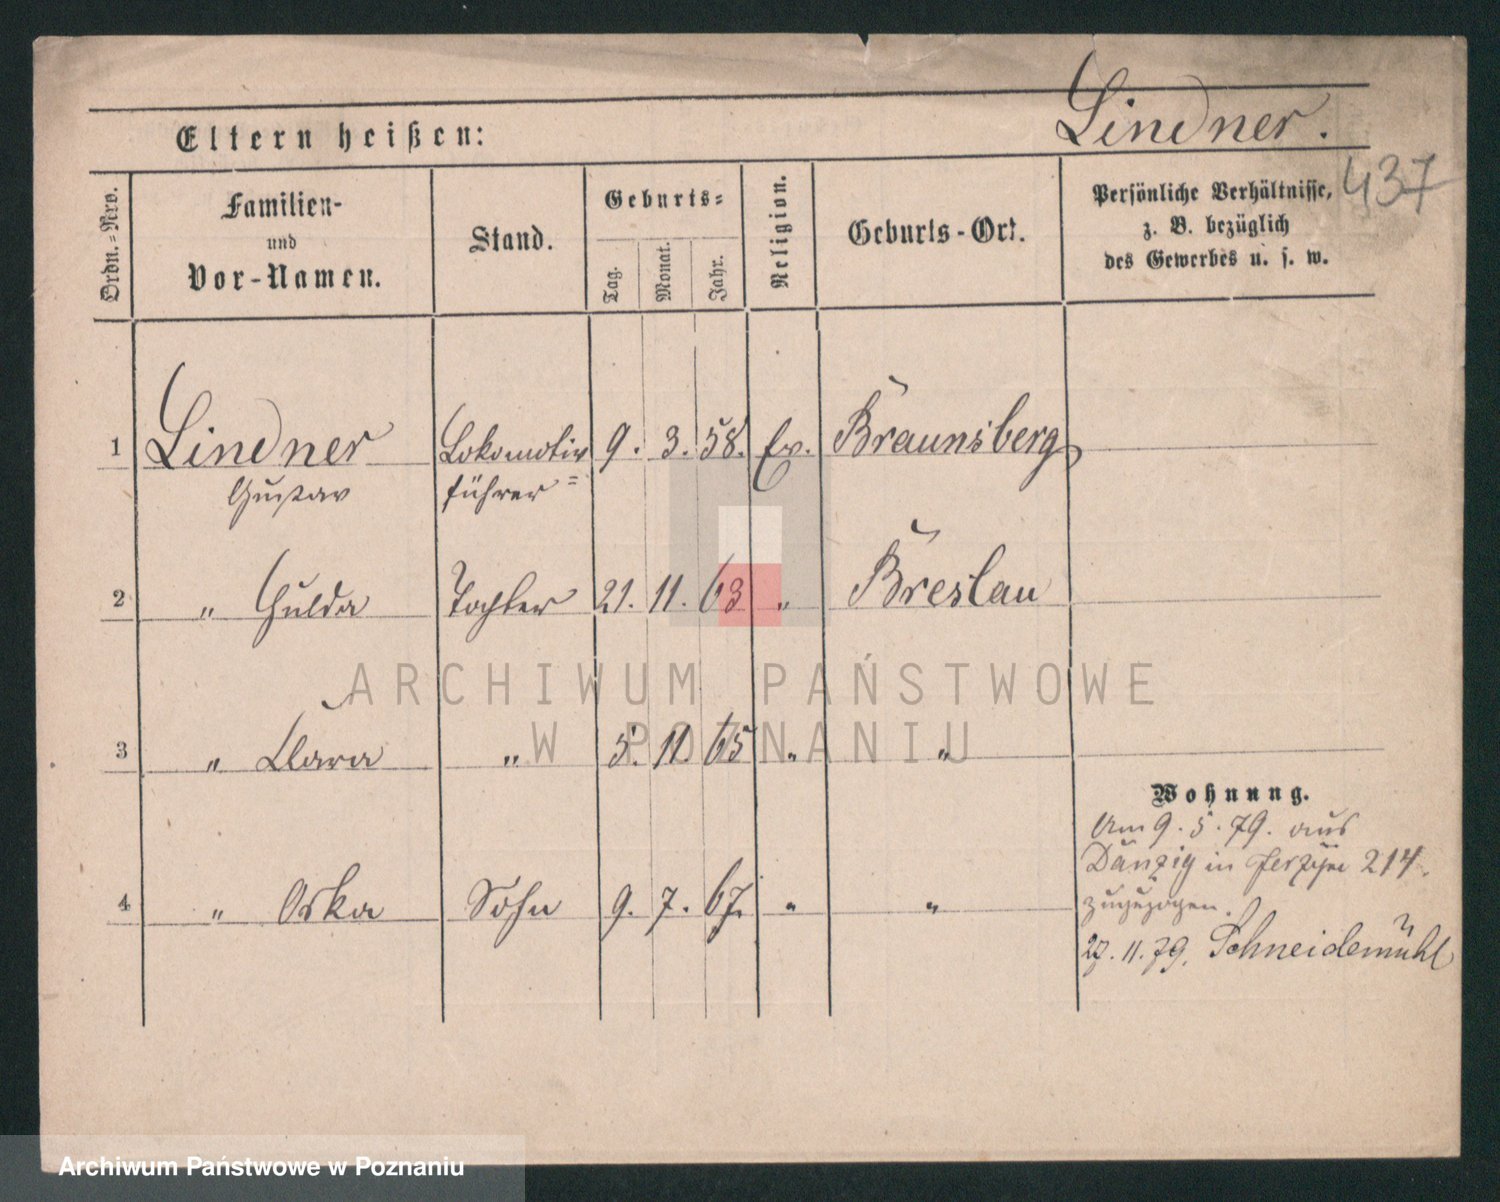 Lindner.
Eltern heißen:
437
Ordn.=Nro.
Familien-
und
Vor-Namen.
Stand.
Geburts=
Tag.
Monat.
Jahr.
Religion.
Geburts-Ort.
Persönliche Verhältnisse,
z. B. bezüglich
des Gewerbes u. s. w.
1 Lindner Lokomotiv 9. 3. 58. Ev. Braunsberg
Gustav führer
2 " Hulda Tochter 21. 11. 63 " Breslau
ARCHIWUM PAŃSTWOWE
W POZNANIU
3 " Clara " 5. 11. 65 " "
Wohnung.
Am 9. 5. 79. aus
Danzig in 214.
zugezogen.
4 " Oska Sohn 9. 7. 67. " "
27. 11. 79. Schneidemühl
Archiwum Państwowe w Poznaniu